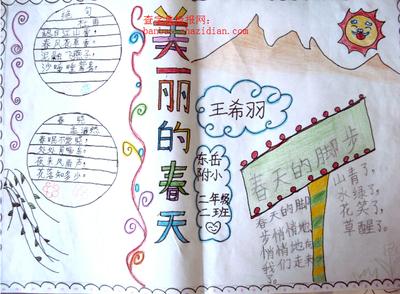 查字典手抄报网:
banbao.chazidian.com
绝句
杜甫
迟日江山丽，
春风花草香。
泥融飞燕子，
沙暖睡鸳鸯。
春晓
孟浩然
春眠不觉晓，
处处闻啼鸟。
夜来风雨声，
花落知多少。
美丽的春天
王希羽
东岳
附小
二年级
二班
春天的脚步
春天的脚
步悄悄地
悄悄地向
我们走来
山青了，
水绿了，
花笑了，
草醒了。